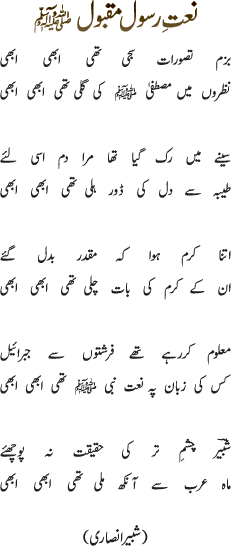 نعت رسول مقبول ﷺ
بزم تصورات سجی تھی ابھی ابھی
نظروں میں مصطفیٰ ﷺ کی گلی تھی ابھی ابھی
سینے میں رک گیا تھا مرا دم اسی لئے
طیبہ سے دل کی ڈور ہلی تھی ابھی ابھی
اتنا کرم ہوا کہ مقدر بدل گئے
ان کے کرم کی بات چلی تھی ابھی ابھی
معلوم کررہے تھے فرشتوں سے جبرائیل
کس کی زبان پہ نعت نبی ﷺ تھی ابھی ابھی
شبیر چشمِ تر کی حقیقت نہ پوچھئے
ماہ عرب سے آنکھ ملی تھی ابھی ابھی
(شبیر انصاری)